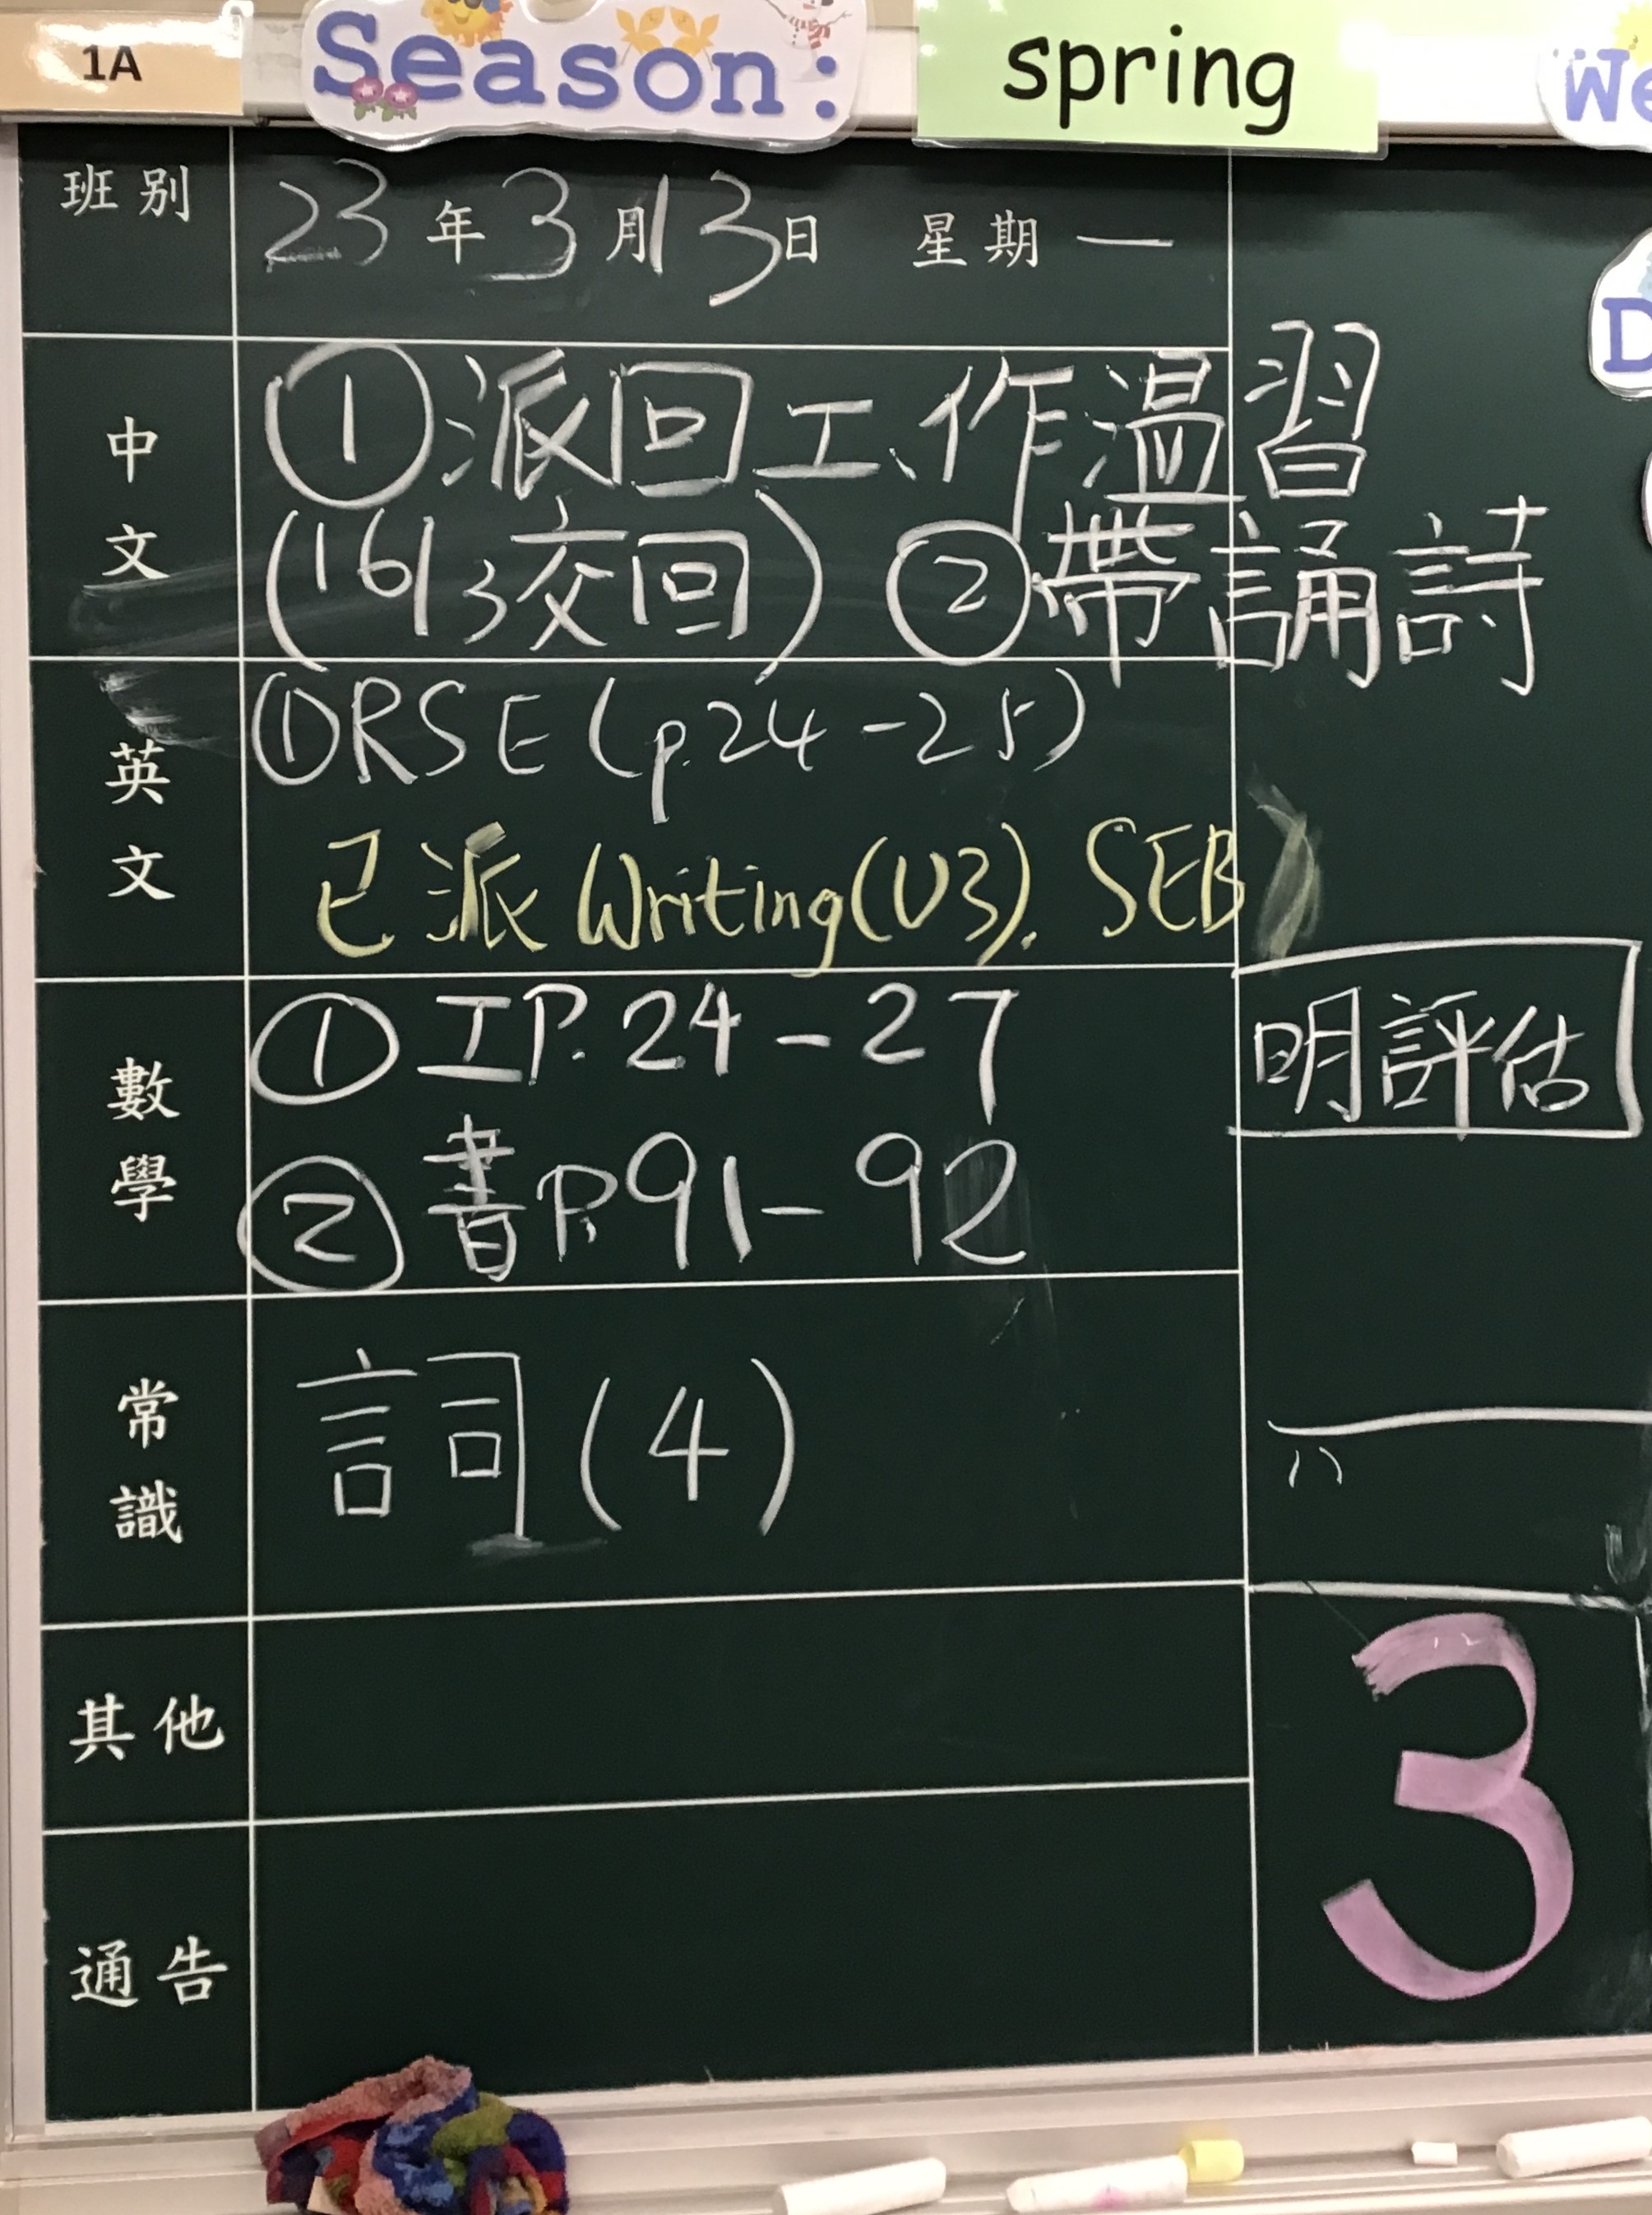 1A
Season:
spring
We
D
班別
23年3月13日 星期一
中文
①派回工作溫習
(16/3交回) ②帶誦詩
英文
①RSE (p.24-25)
已派 Writing(U3). SEB
數學
① 工P.24-27
② 書P.91-92
明評估
常識
詞(4)
其他
通告
3